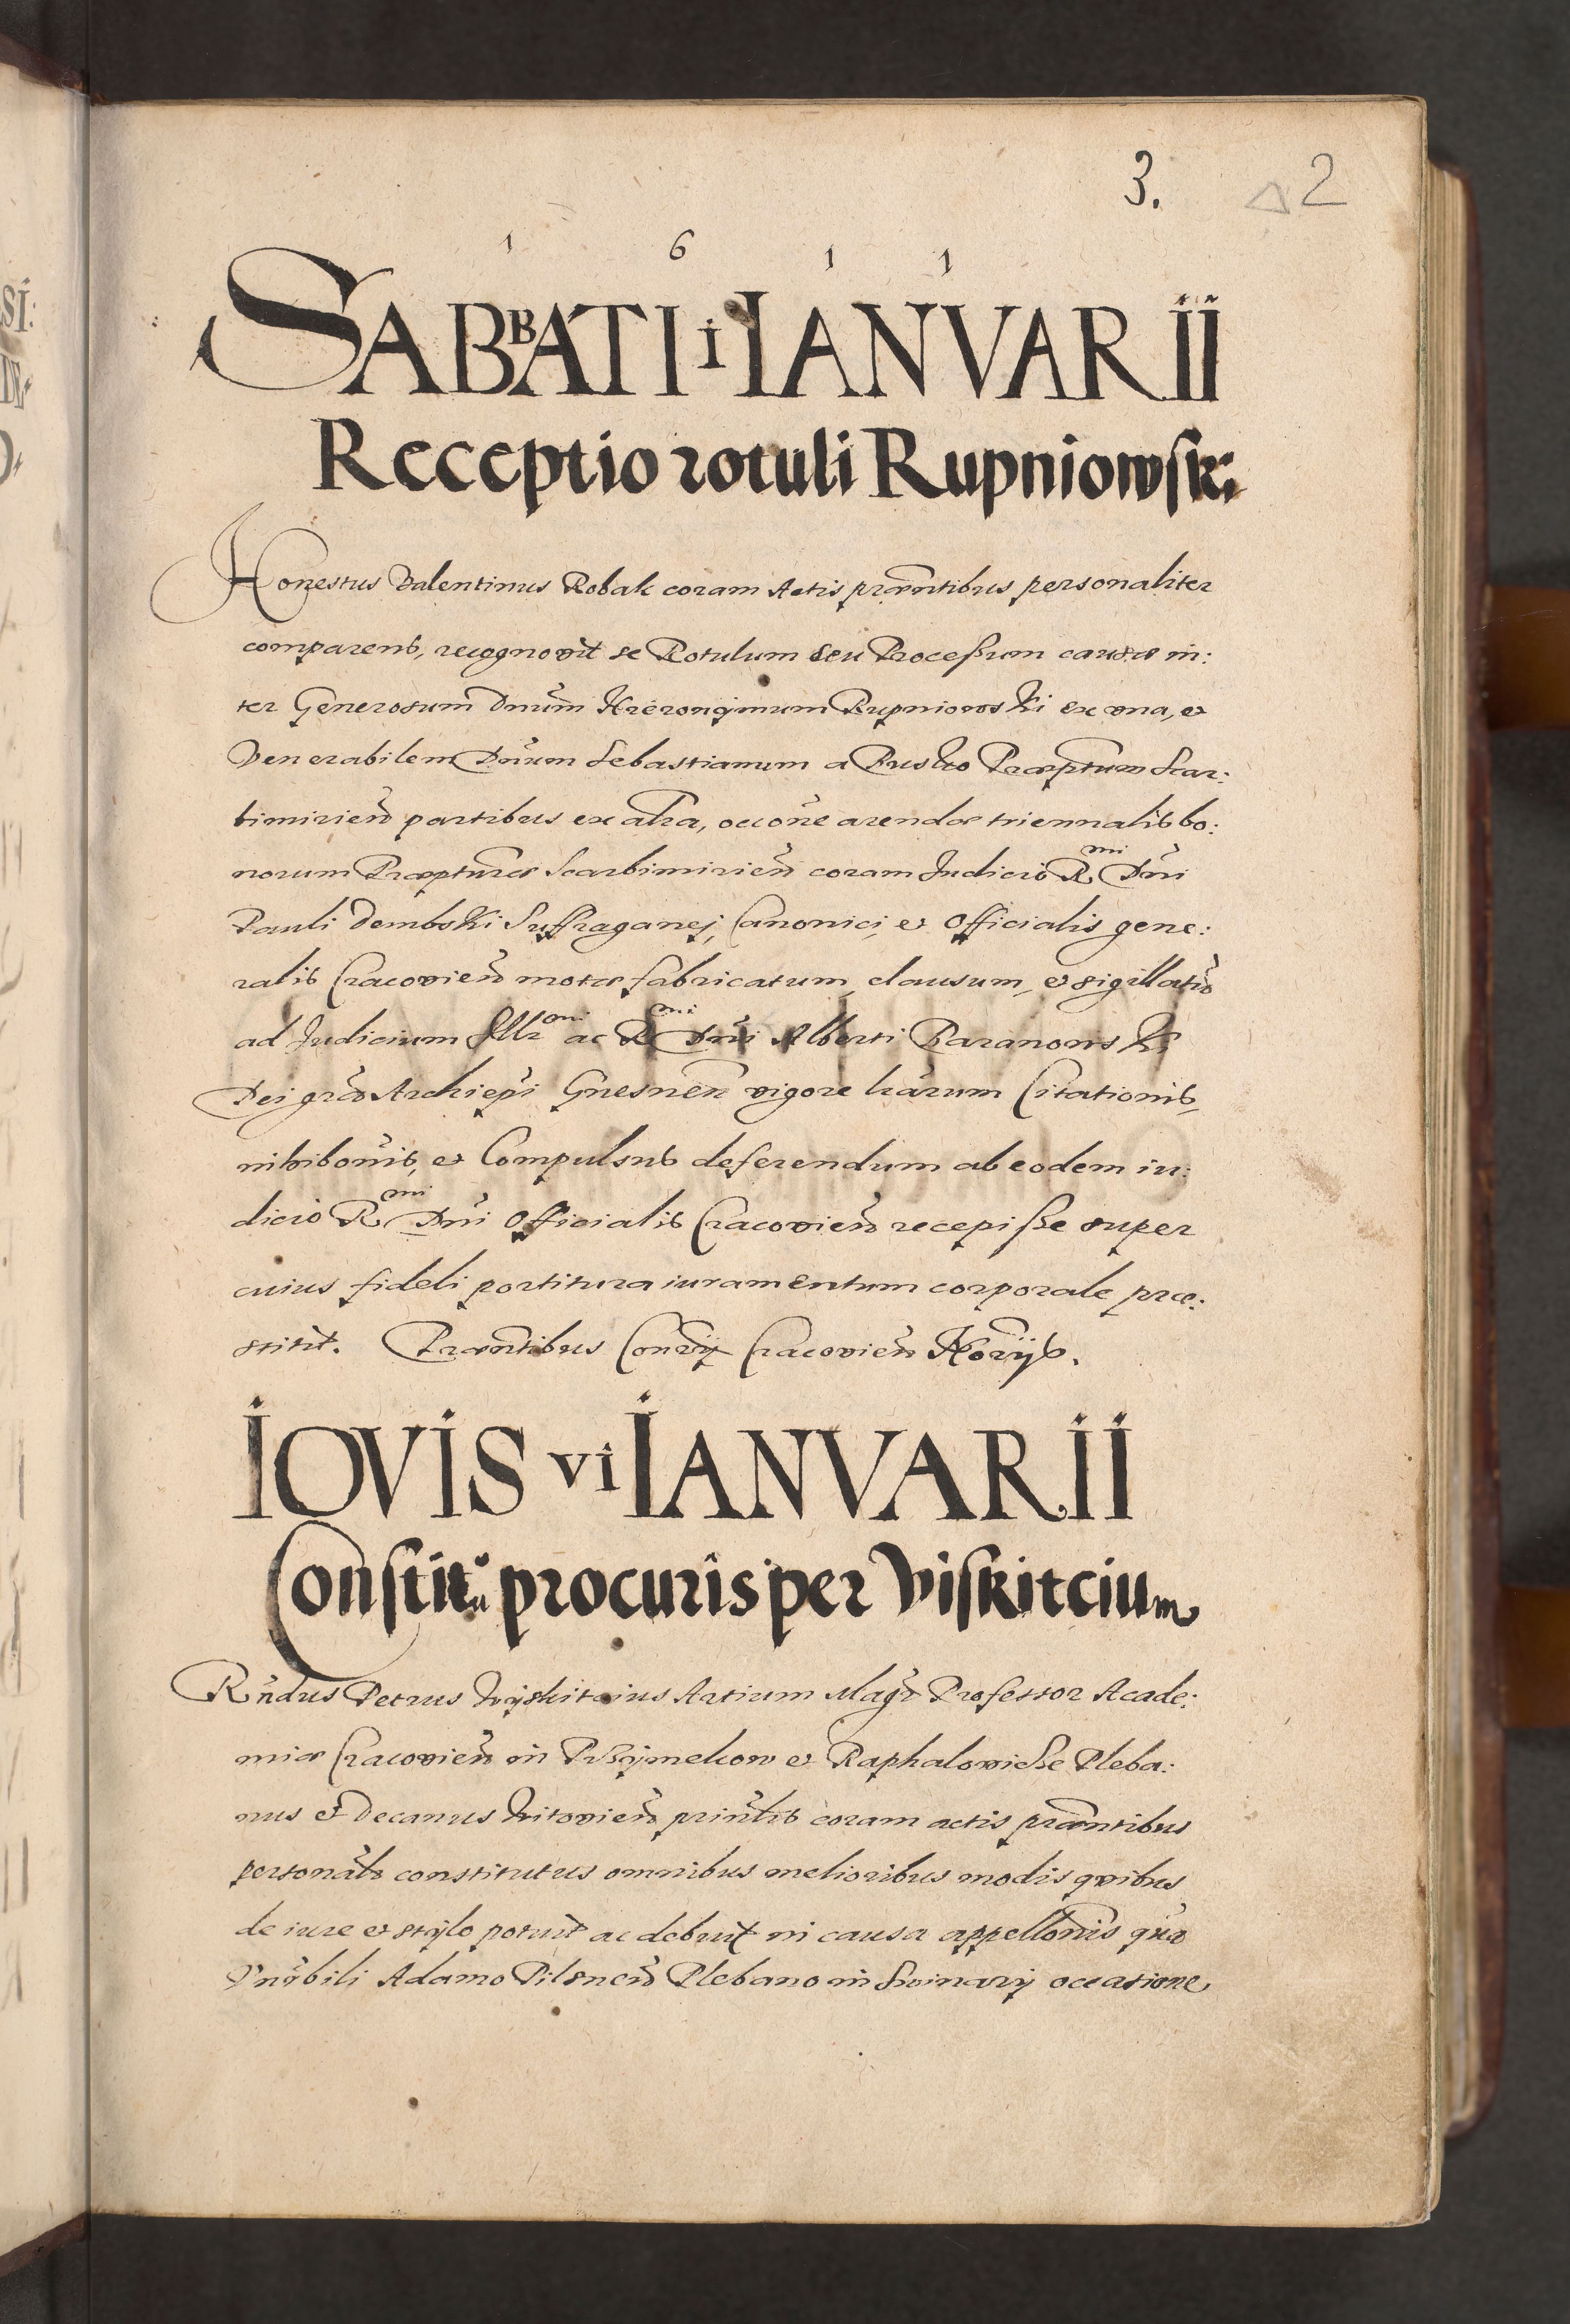 3. 2
1 6 1 1
SABBATI i IANVARII
Receptio rotuli Rupniowsk:
Honestus Valentinus Robak coram Actis præntibus personaliter
comparens, recognovit se Rotulum seu Proceßum causæ in:
ter Generosum Dnum Hieronymum Rupniowski ex vna, et
Venerabilem Dnum Sebastianum a Busko Præptum Scar:
bimirien partibus ex altra, occone arendæ triennalis bo:
norum Præpturæ Scarbimirien coram Judicio Rmi Dni
Pauli Dembski Suffraganej, Canonici, et Officialis gene:
ralis Cracovien motæ fabricatum, clausum, et sigillatu
ad Judicium Illmi ac Rmi Dni Alberti Baranowski
Dei gra Archiepi Gnesnen vigore harum Citationis,
inhibonis, et Compulsus deferendum ab eodem iu:
dicio Rmi Dni Officialis Cracovien recepiße super
cuius fideli portitura iuramentum corporale præ:
stitit. Præntibus Conrij Cracovien Norijs.
IOVIS vi IANVARII
Constitu procuris per Viskitcium
Rndus Petrus Wyskitcius Artium Magr Professor Acade:
miæ Cracovien in Przymekow et Raphalowicze Pleba:
nus et Decanus Witovien prinlis coram actis præntibus
personalr constitutus omnibus melioribus modis quibus
de iure et stylo potuit ac debuit in causa appellonis qua
Vnrbili Adamo Pilsnen Plebano in Swinary occasione